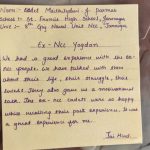 Name:- Cadet Maithilydan J. Parmar
School:- St. Francis High School, Jamnagar
Unit:- 8th Guj Naval Unit Ncc, Jamnagar
Ex-Ncc Yogdan
We had a great experience with the ex-
ncc people. We have talked with them
about their life, their struggle, their
events. They also gave us a movement
task. The ex-ncc cadets were so happy
while recalling their past experience. It was
a great experience for me.
Jai Hind.